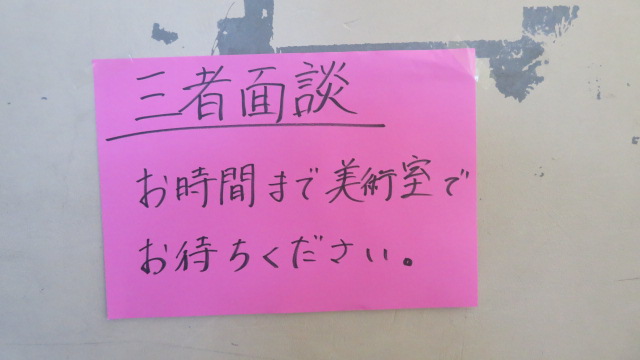 三者面談
お時間まで美術室で
お待ちください。